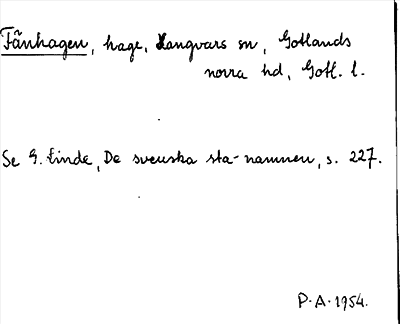 Fånhagen, hage, Hangvars sn, Gotlands
norra hd, Gotl. l.
Se G. Linde, De svenska sta-namnen, s. 227.
P.A. 1954.